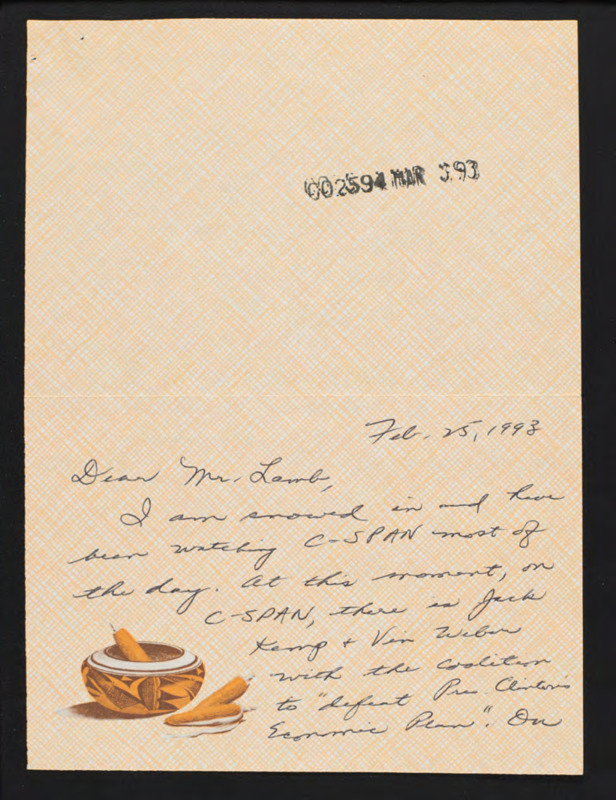 002594 MAR 5.93
Feb. 25, 1993
Dear Mr. Lamb,
I am snowed in and have
been watching C-SPAN most of
the day. At this moment, on
C-SPAN, there is Jack
Kemp + Vin Weber
with the coalition
to "defeat Pres. Clinton's
Economic Plan". On